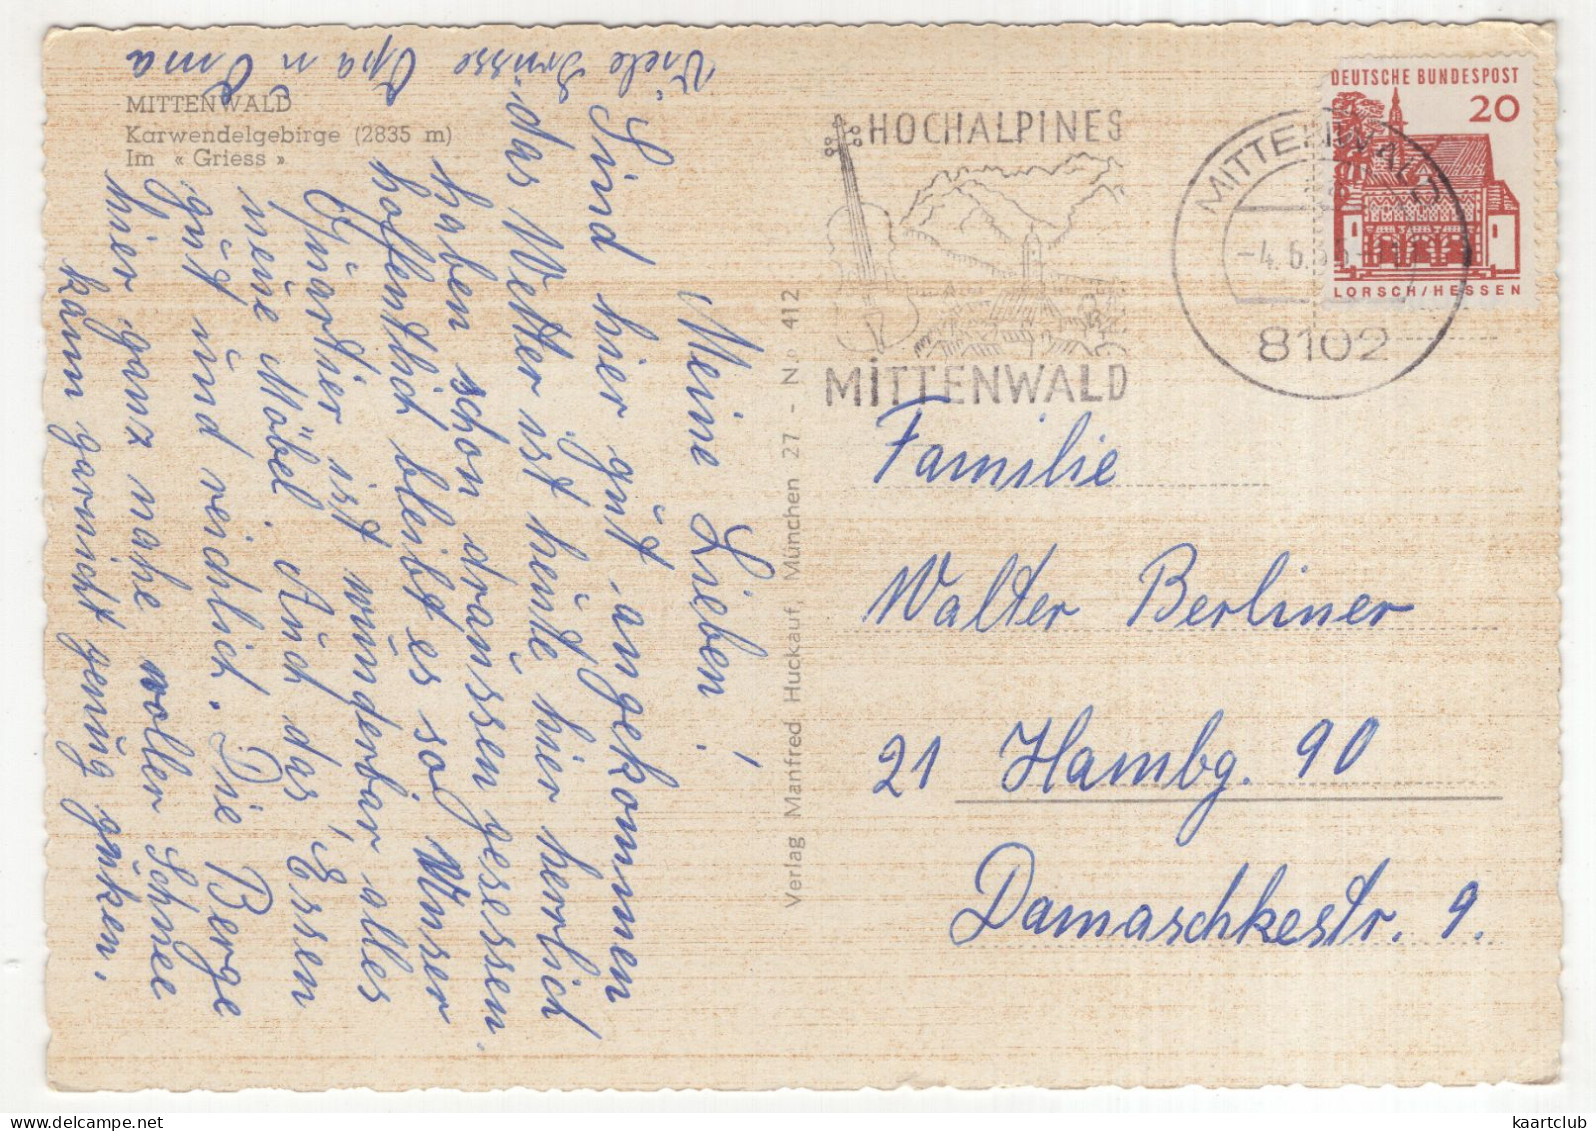 MITTENWALD
Karwendelgebirge (2835 m)
Im « Griess »
Meine Lieben!
Sind hier gut angekommen
das Wetter ist heute hier herrlich
haben schon draussen gesessen.
hoffentlich bleibt es so Unser
Quartier ist wunderbar alles
neue Möbel. Auch das Essen
gut und reichlich. Die Berge
hier ganz nahe voller Schnee
kann garnicht genug guken.
Viele Grüsse Opa u Oma
Verlag Manfred Huckauf, München 27 - N.º 412
HOCHALPINES
MITTENWALD
MITTENWALD
-4.6.
8102
DEUTSCHE BUNDESPOST
20
LORSCH/HESSEN
Familie
Walter Berliner
21 Hambg. 90
Damaschkestr. 9.
kaartclub
www.delcampe.net